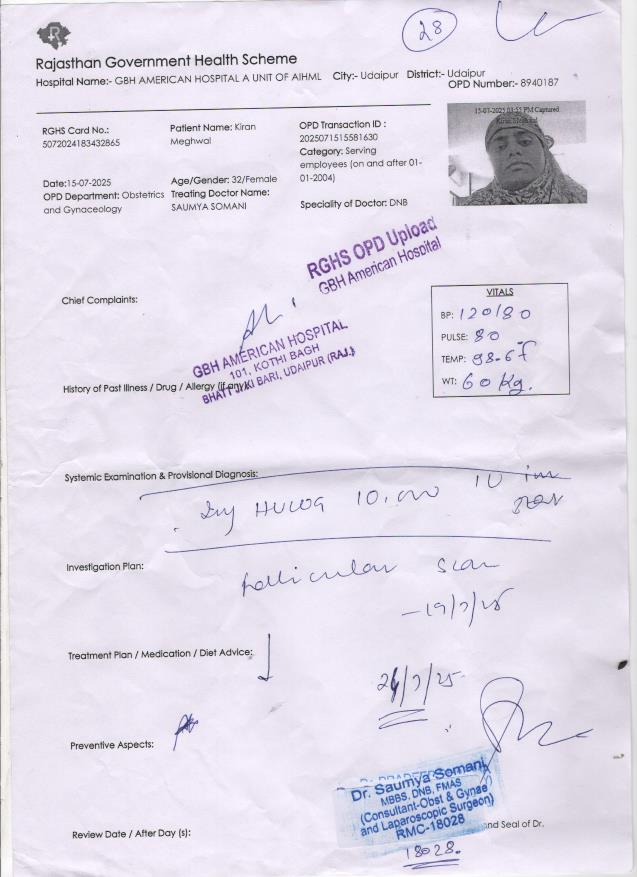 28
R
Rajasthan Government Health Scheme
Hospital Name:- GBH AMERICAN HOSPITAL A UNIT OF AIHML City:- Udaipur District:- Udaipur
OPD Number:- 8940187
15-07-2025 03:55 PM Captured
Kiran Meghwal
RGHS Card No.:
5072024183432865
Patient Name: Kiran
Meghwal
OPD Transaction ID :
2025071515581630
Category: Serving
employees (on and after 01-
01-2004)
Date:15-07-2025
OPD Department: Obstetrics
and Gynaceology
Age/Gender: 32/Female
Treating Doctor Name:
SAUMYA SOMANI
Speciality of Doctor: DNB
RGHS OPD Upload
GBH American Hospital
Chief Complaints:
VITALS
BP: 120/80
PULSE: 80
TEMP: 98.6f
WT: 60 Kg.
GBH AMERICAN HOSPITAL
101, KOTHI BAGH
BHATT JI KI BARI, UDAIPUR (RAJ.)
History of Past Illness / Drug / Allergy (if any):
Systemic Examination & Provisional Diagnosis:
Inj HUCOG 10,000 IU im
Investigation Plan:
follicular scan
- 19/7/25
Treatment Plan / Medication / Diet Advice:
/7/25
Preventive Aspects:
Dr. Saumya Somani
MBBS, DNB, FMAS
(Consultant-Obst & Gynae
and Laparoscopic Surgeon)
RMC-18028
Review Date / After Day (s):
and Seal of Dr.
18028.